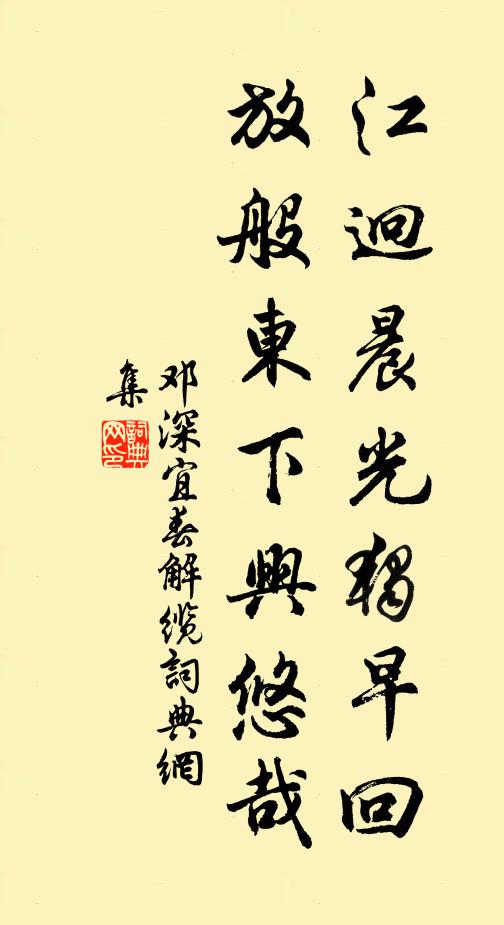 江迴晨光獨早回
放般東下興悠哉
邓深宜春解缆詞典網
集
詞典
网印